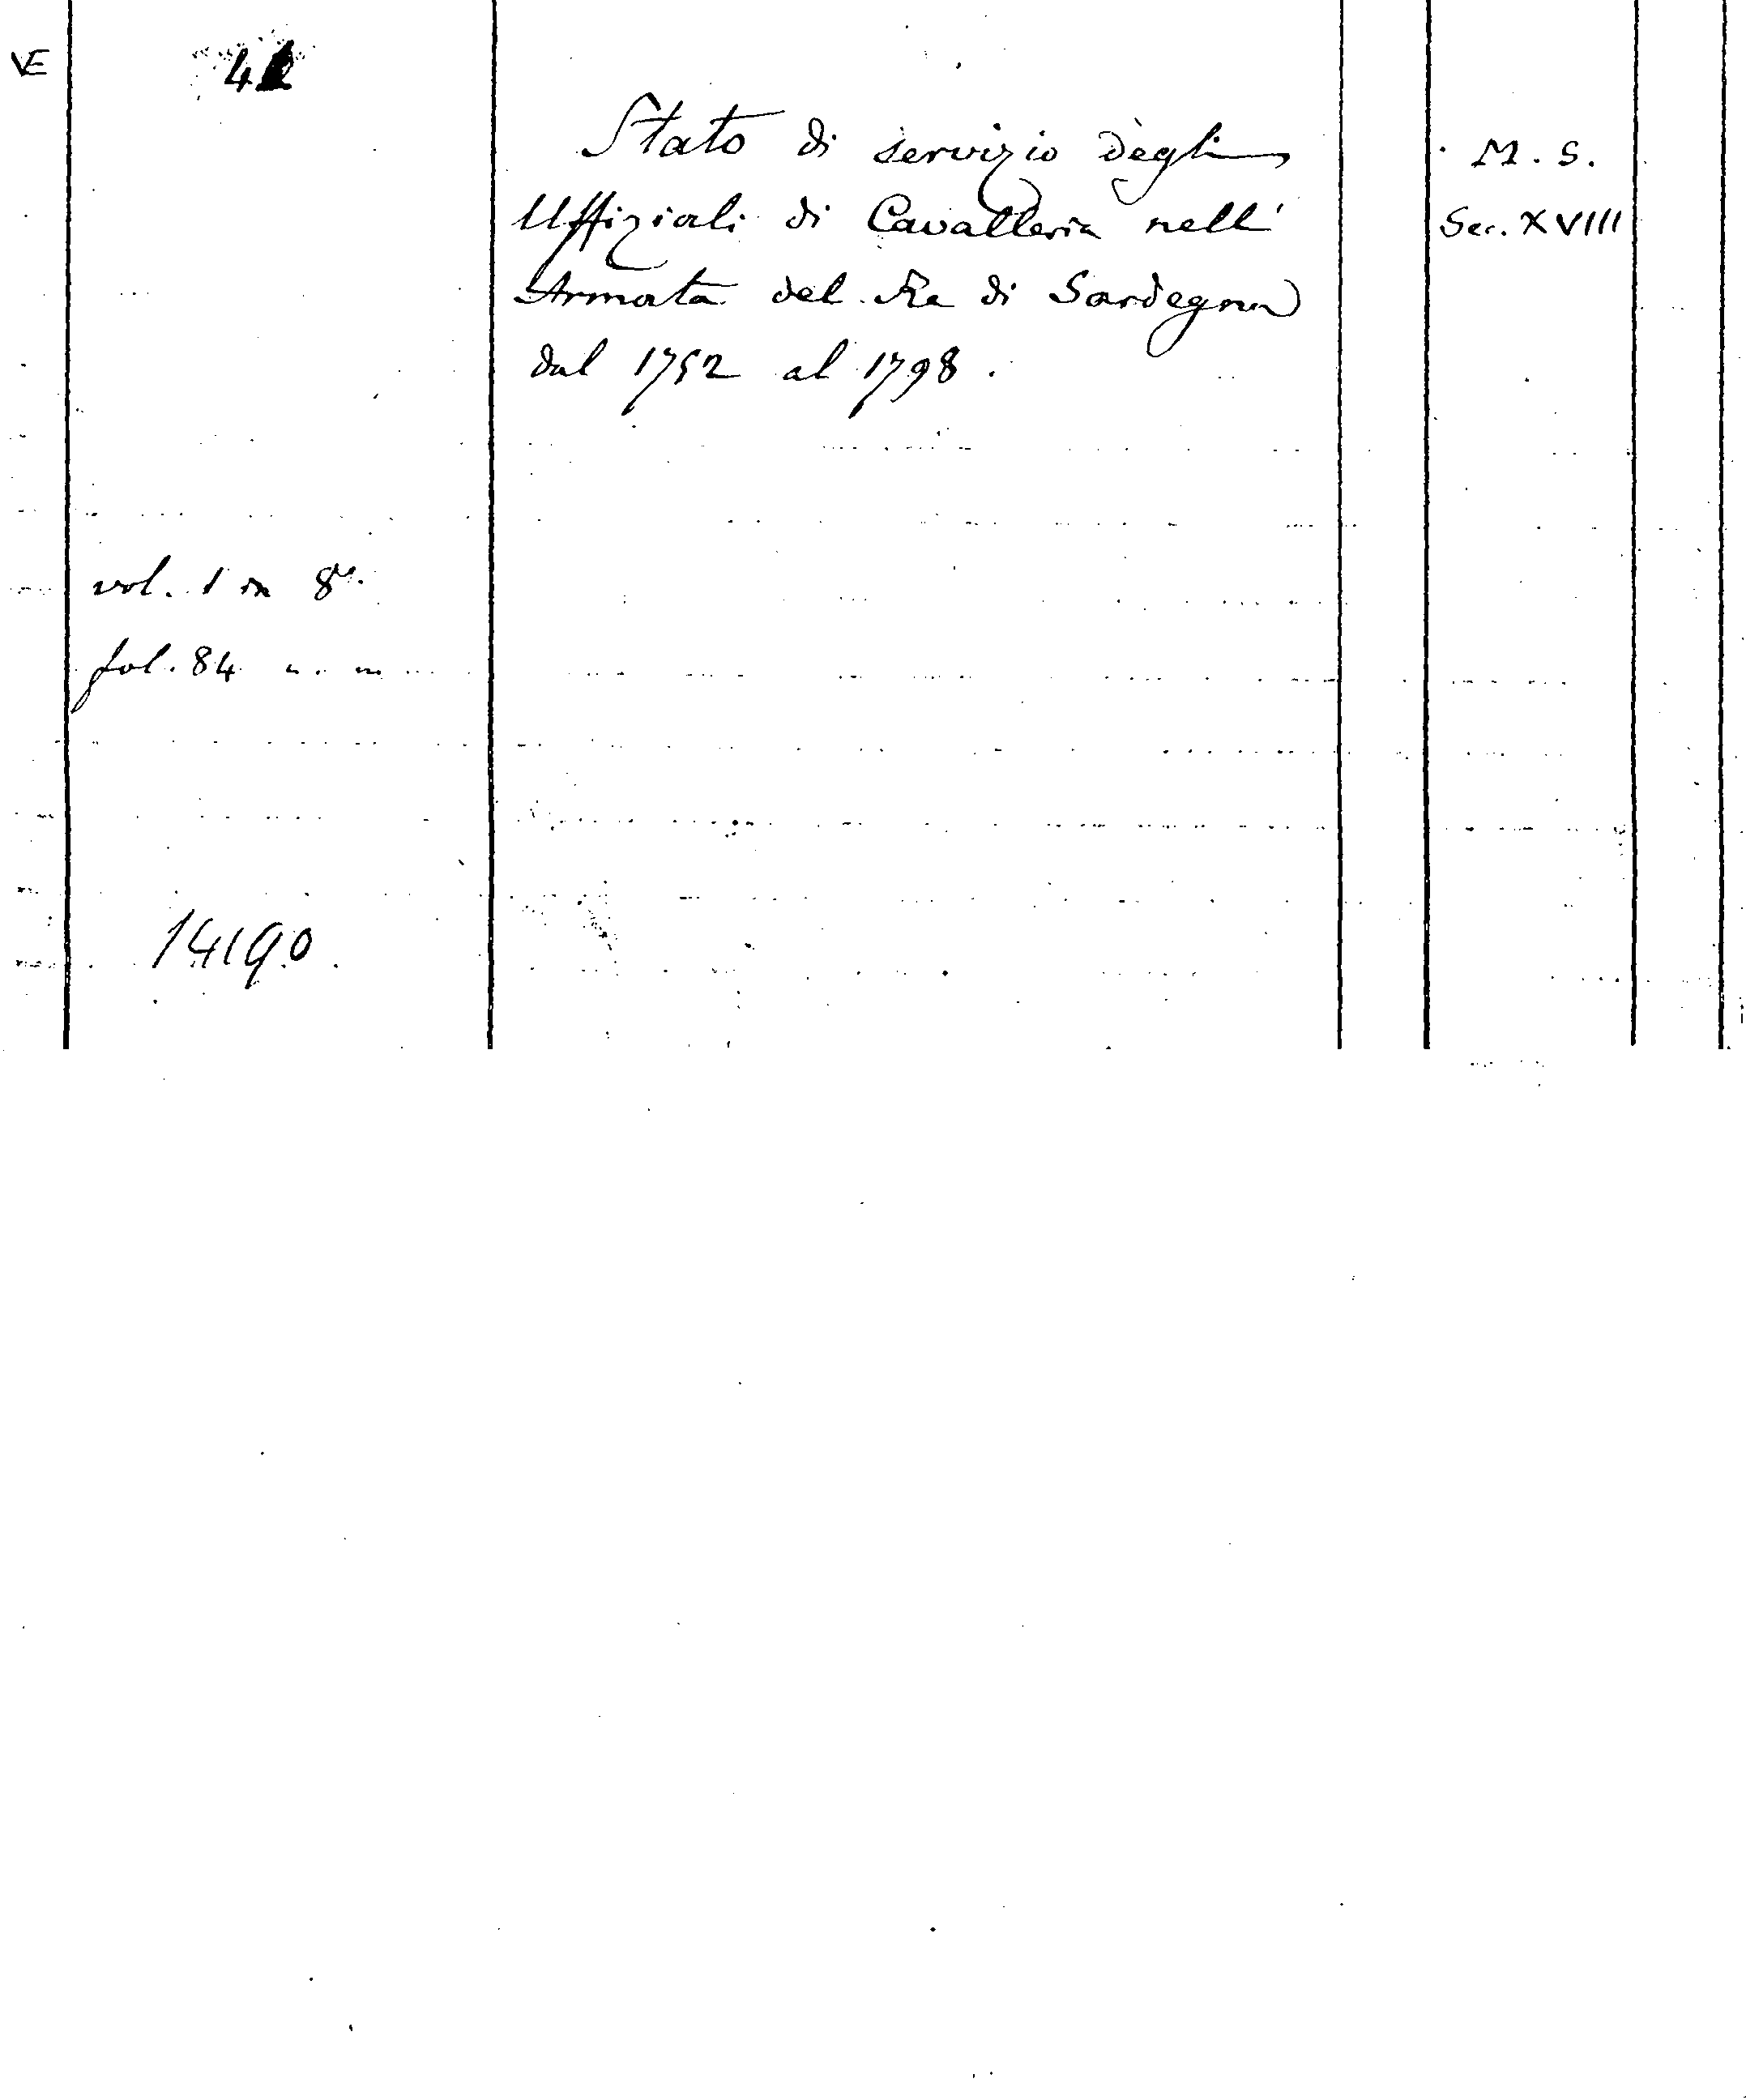 VE
Stato di servizio degli
Uffiziali di Cavalleria nell'
Armata del Re di Sardegna
dal 1752 al 1798.
M. S.
Sec. XVIII
vol. 1 in 8º.
fol. 84 n. n.
14190